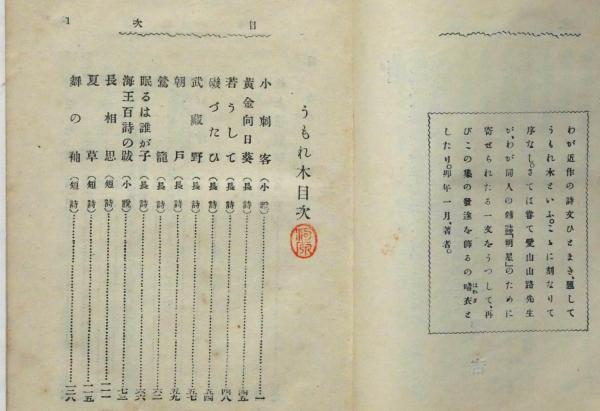 わが近作の詩文ひとまき、題して
うもれ木といふ。こゝに刻なりて
序なし。さては嘗て愛山山路先生
が、わが同人の雑誌『明星』のために
寄せられたる一文をうつして、再
びこの集の發途を飾るの晴衣と
したり。卯年一月、著者。
目次
1
うもれ木目次
小刺客（小說）一
黃金向日葵（長詩）四五
若うして（長詩）四八
磯づたひ（長詩）五四
武藏野（長詩）五七
朝戶（長詩）五九
鶯籠（長詩）六二
眠るは誰が子（長詩）六六
海王百詩の跋（小說）七三
長相思（長詩）一一一
夏草（短詩）一一五
舞の袖（短詩）一二八